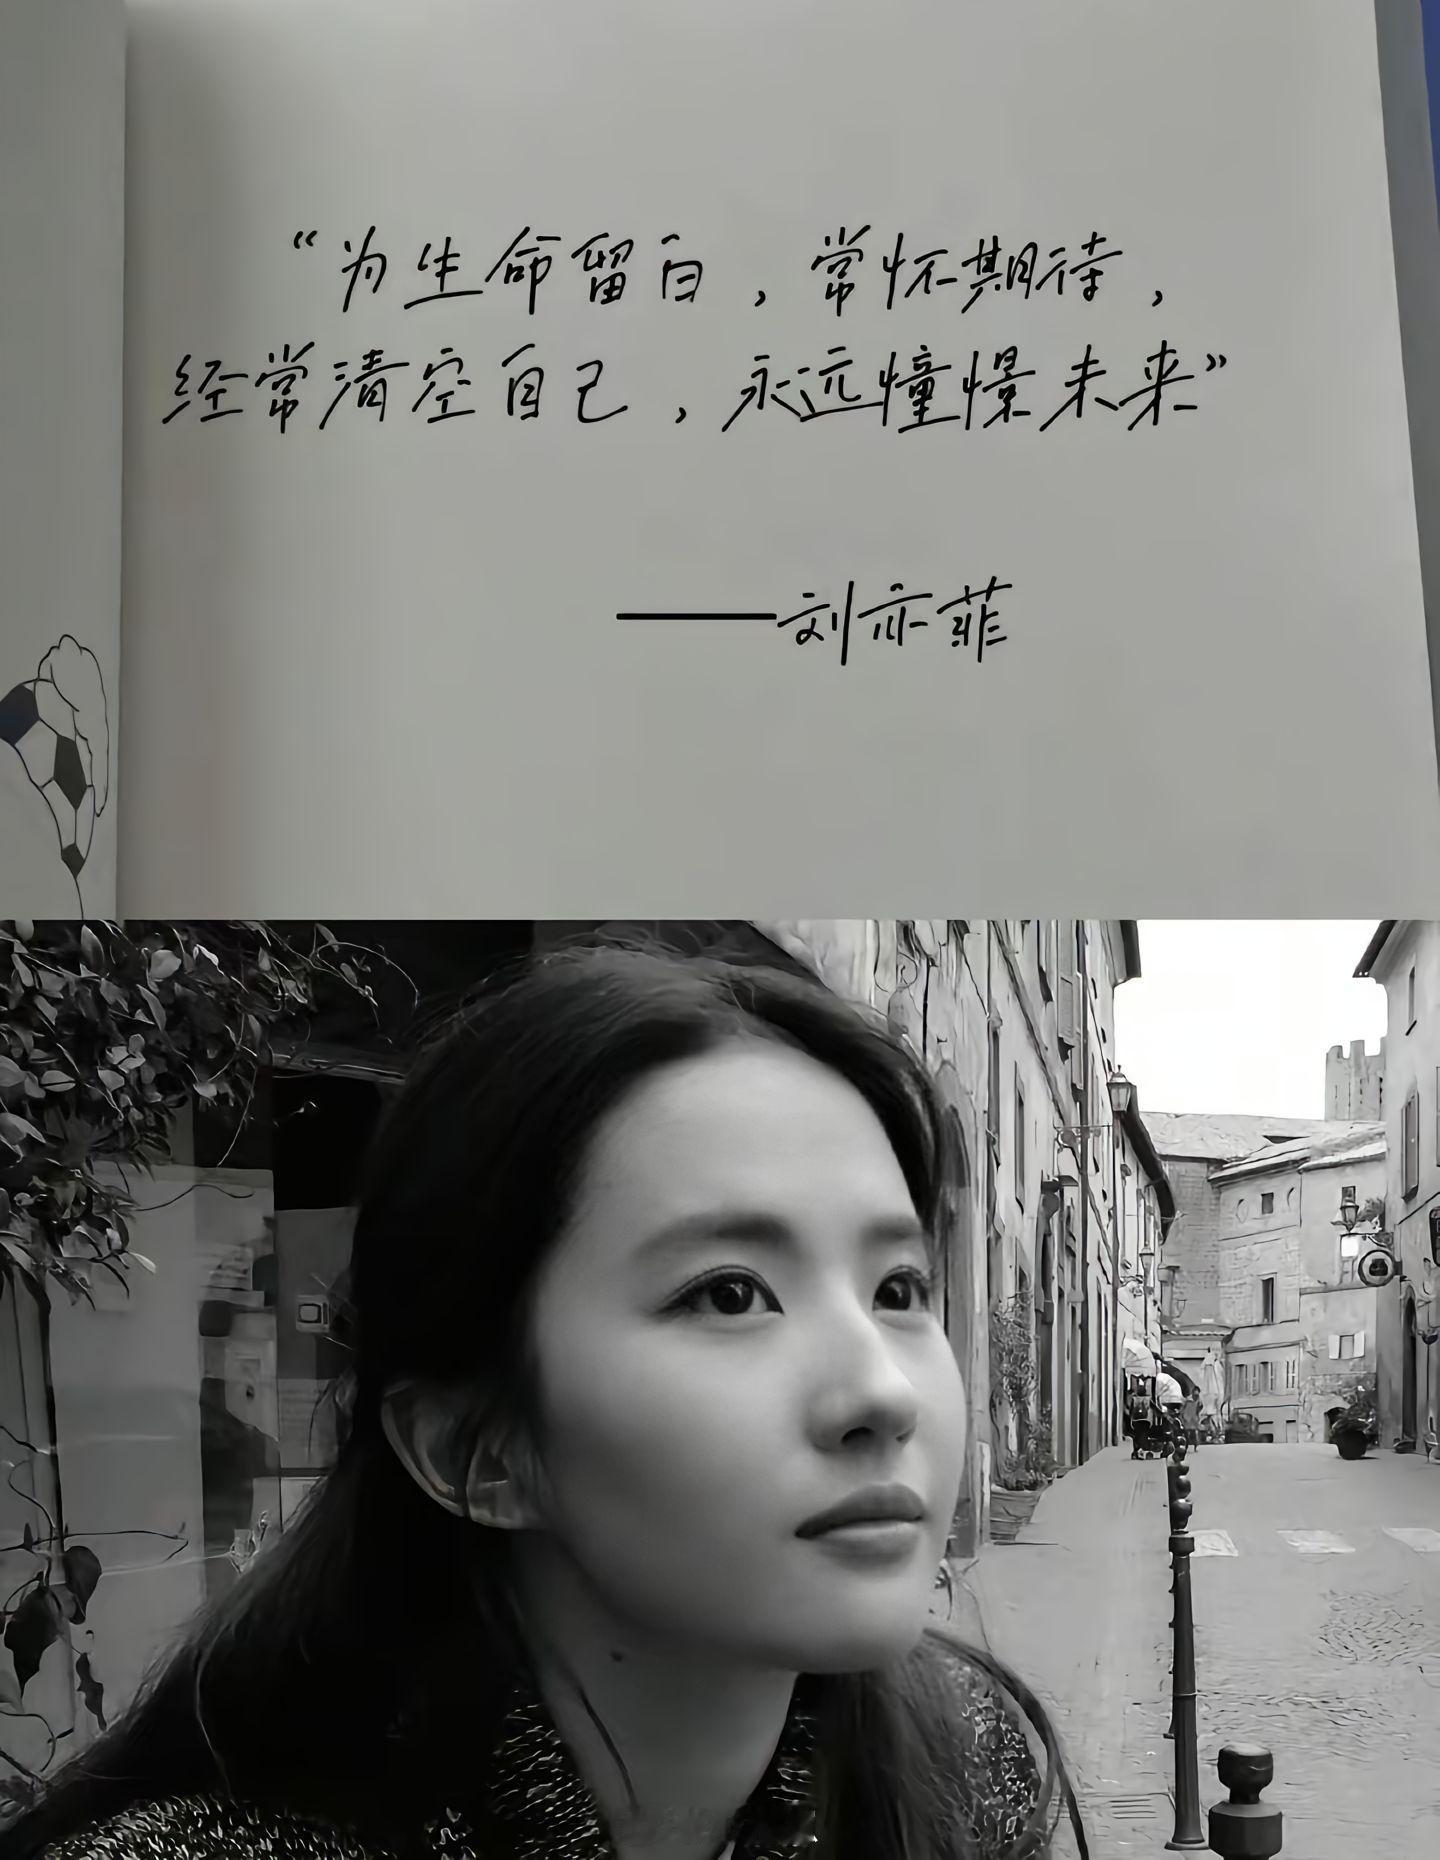 “为生命留白，常怀期待，
经常清空自己，永远憧憬未来”
——刘亦菲